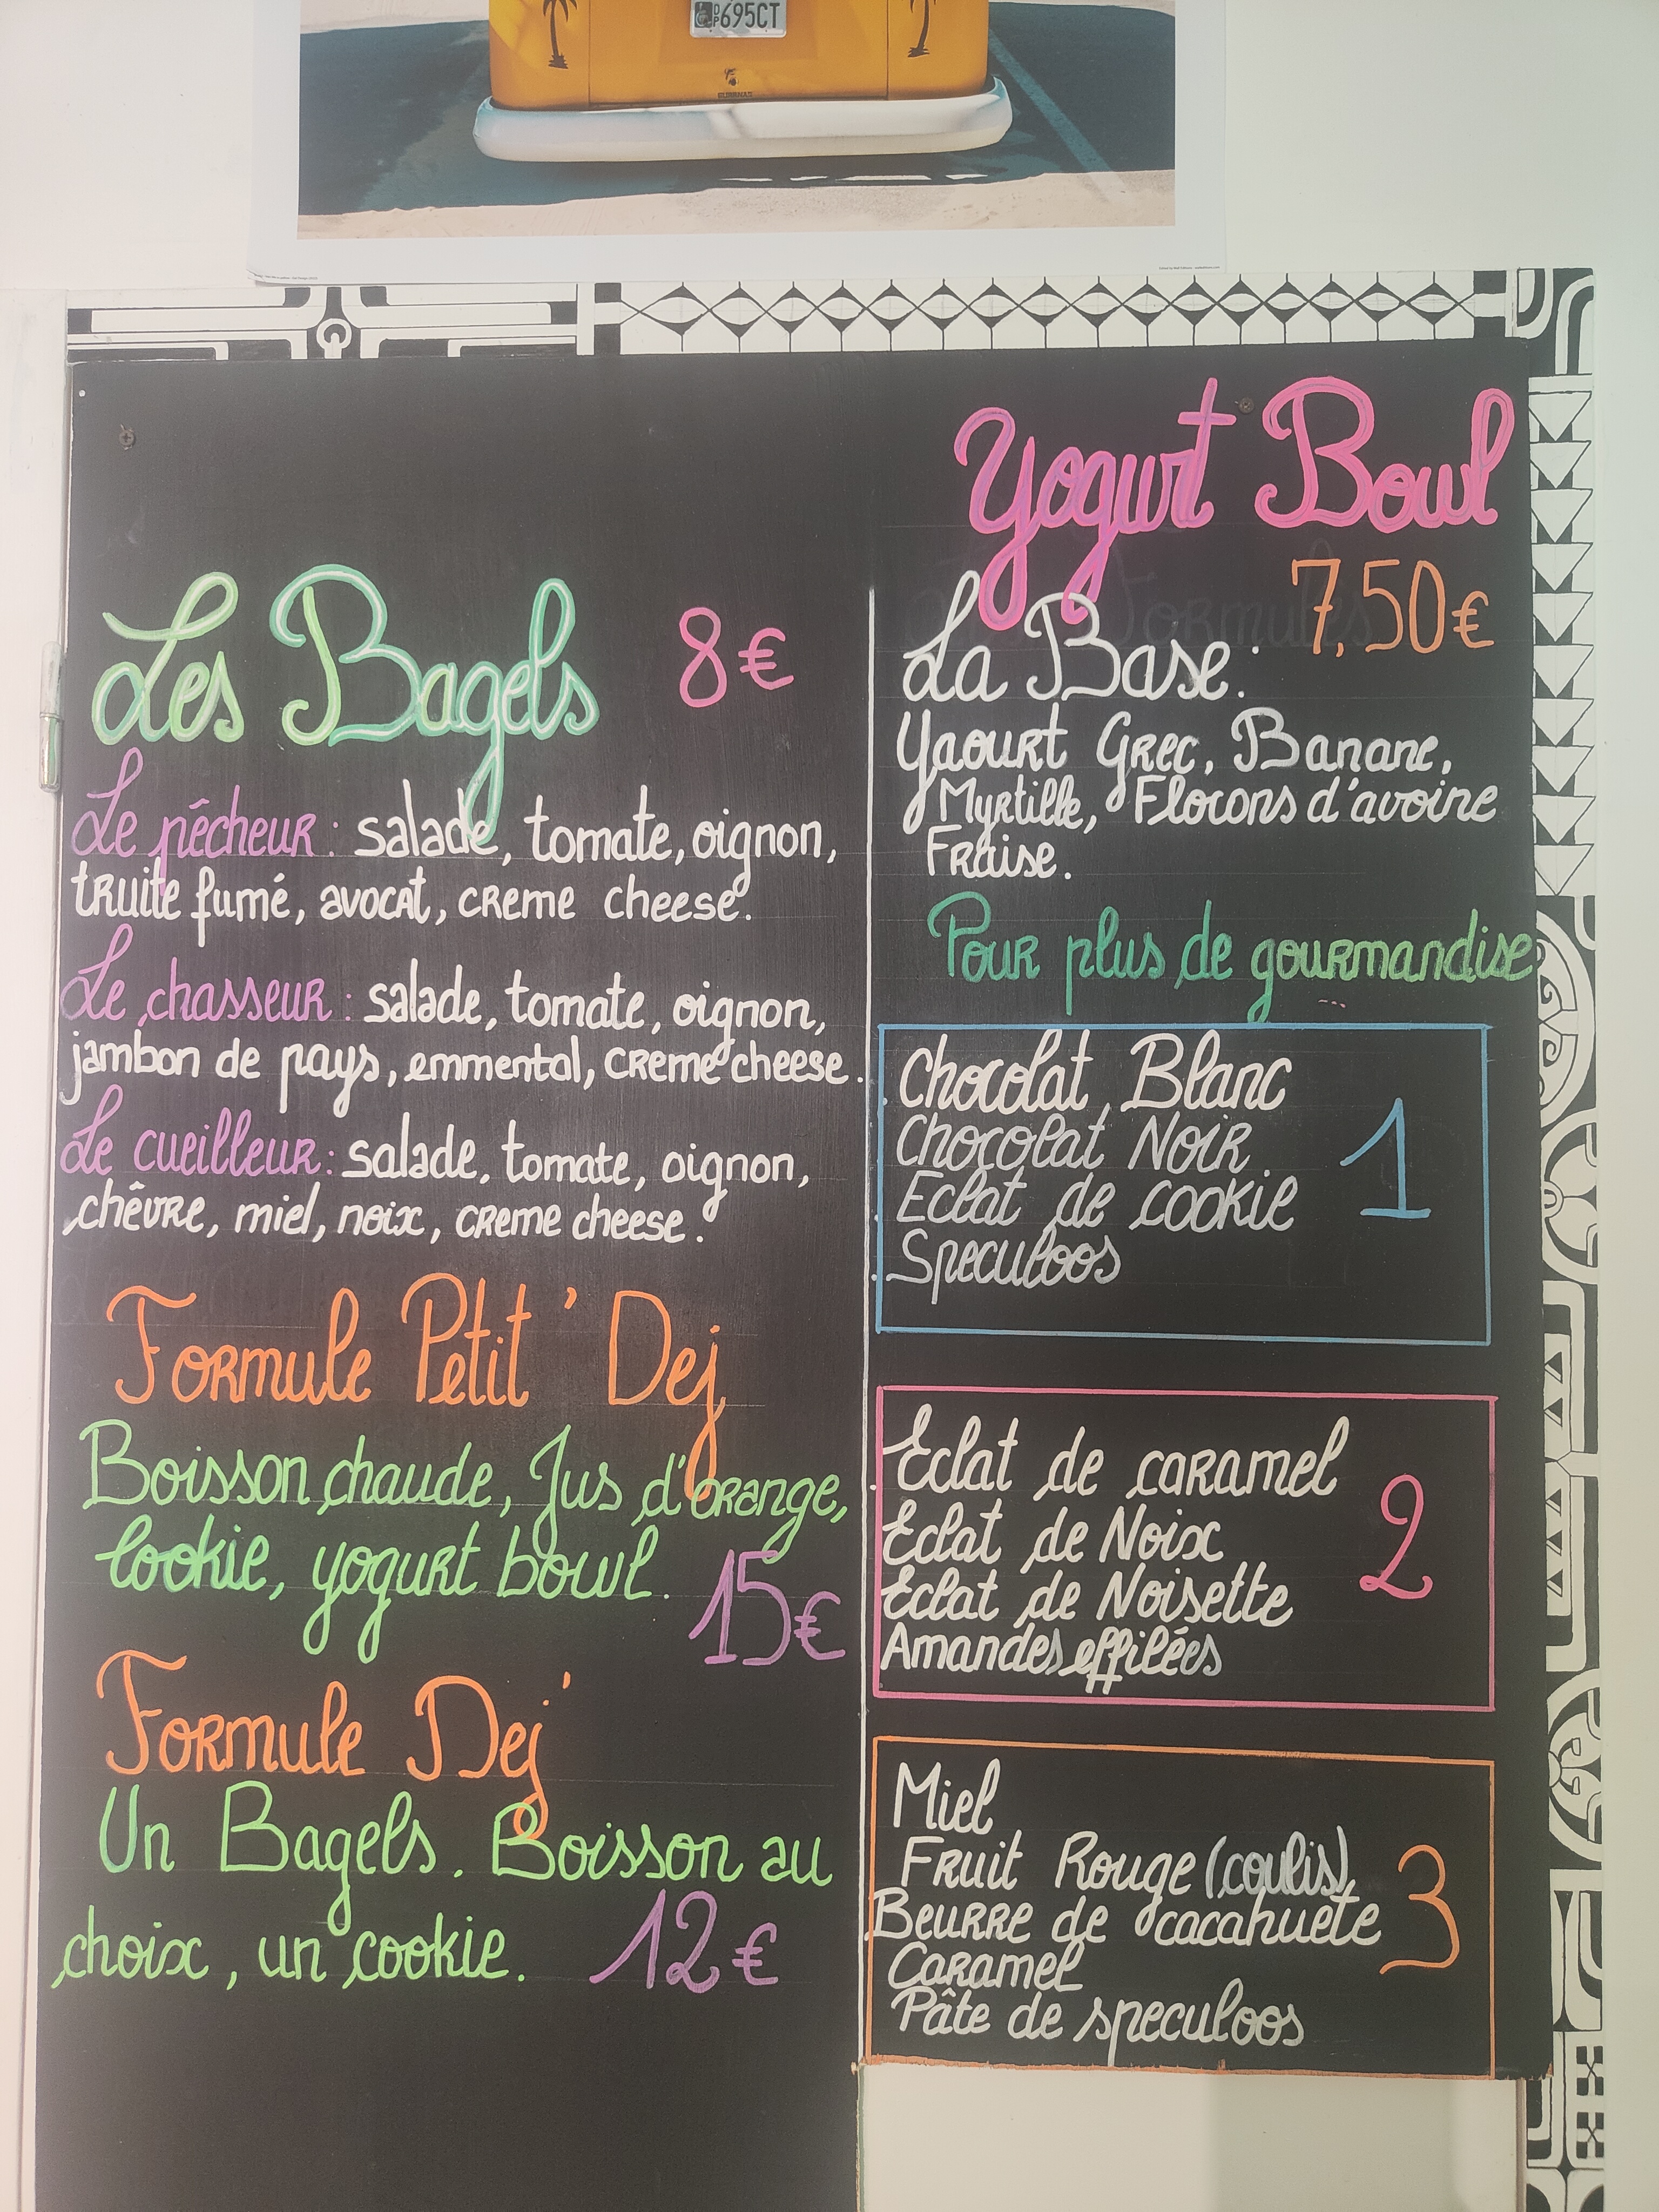 695CT
Les Bagels 8€
Le pêcheur : salade, tomate, oignon,
truite fumé, avocat, creme cheese.
Le chasseur : salade, tomate, oignon,
jambon de pays, emmental, creme cheese.
Le cueilleur : salade, tomate, oignon,
chêvre, miel, noix, creme cheese.
Formule Petit' Dej
Boisson chaude, Jus d'orange,
Cookie, yogurt bowl.
15€
Formule Dej'
Un Bagels. Boisson au
choix, un cookie. 12€
Yogurt Bowl
7,50€
La Base :
Yaourt Grec, Banane,
Myrtille, Flocons d'avoine
Fraise.
Pour plus de gourmandise
...
Chocolat Blanc
Chocolat Noir
Eclat de cookie
Speculoos
1
Eclat de caramel
Eclat de Noix
Eclat de Noisette
Amandes effilées
2
Miel
Fruit Rouge (coulis)
Beurre de cacahuete
Caramel
Pâte de speculoos
3